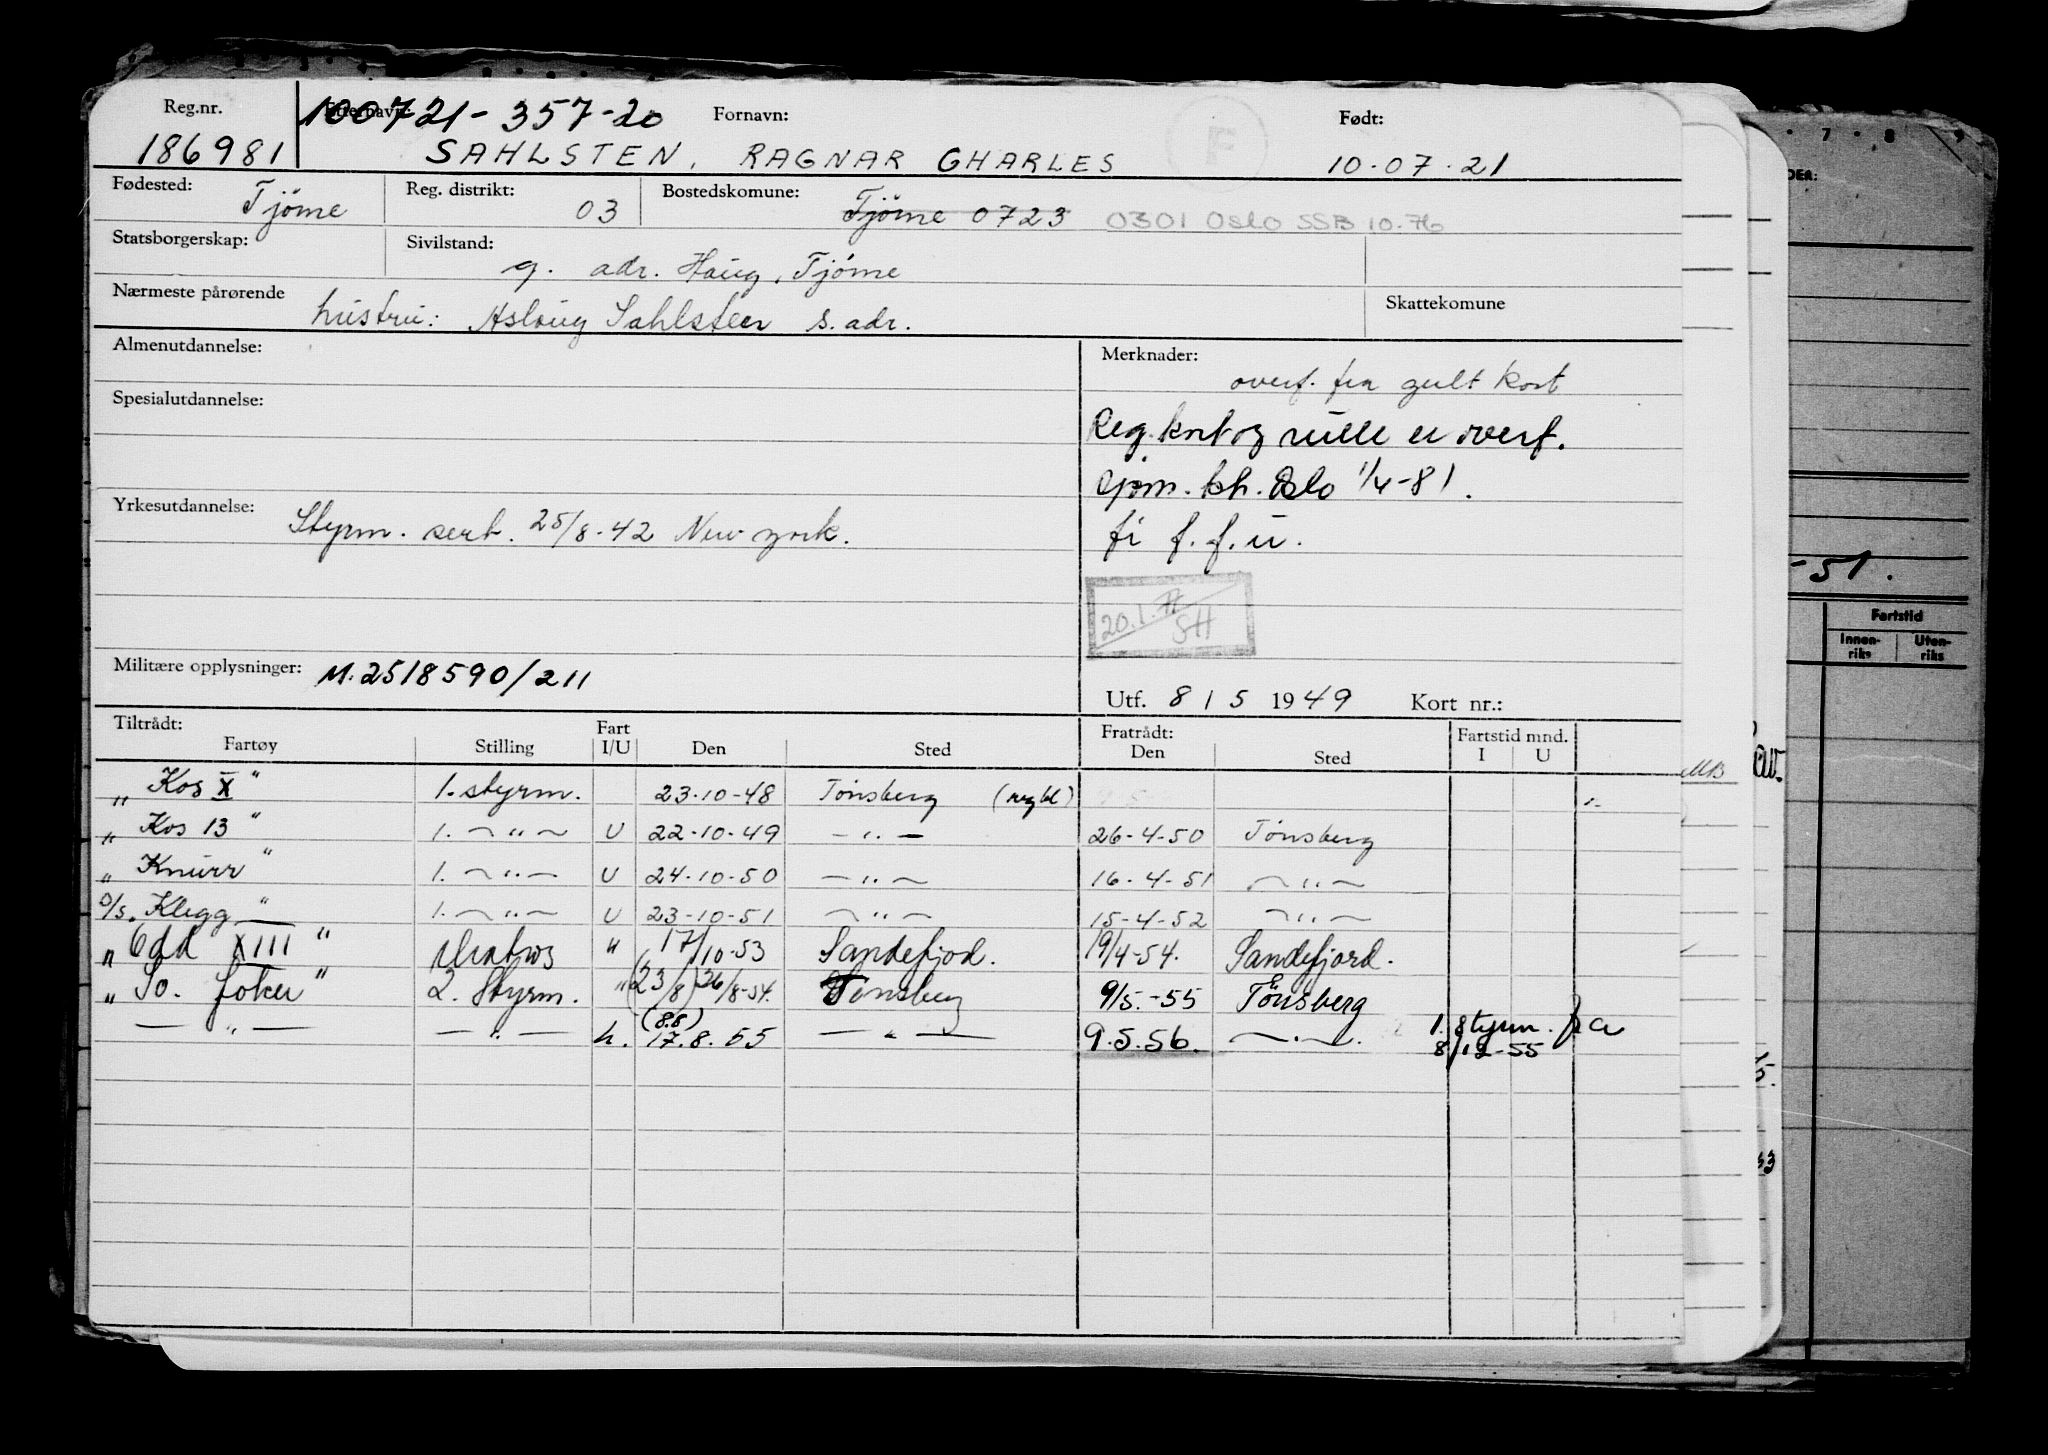 Reg.nr. Etternavn: 100721-357-20 Fornavn: F Født:
186981 SAHLSTEN, RAGNAR GHARLES 10-07-21
Fødested: Tjöme Reg. distrikt: 03 Bostedskomune: Tjöme 0723 0301 Oslo SSB 10.76
Statsborgerskap: Sivilstand: g. adr. Haug, Tjöme
Nærmeste pårørende hustru: Aslaug Sahlsten s. adr. Skattekomune
Almenutdannelse: Merknader:
overf. fra gult kort
Spesialutdannelse: Reg. kort og rulle er overf.
gjom. kh. Oslo 1/4-81.
Yrkesutdannelse: Styrm. sert. 25/8-42 New york. fi f.f.u.
20.1. SH
Militære opplysninger: M.2518590/211
Utf. 8 / 5 1949 Kort nr.:
Tiltrådt: Fratrådt: Fartstid mnd.
Fartøy Stilling Fart I/U Den Sted Den Sted I U
„ Kos X " 1. styrm. 23-10-48 Tönsberg
„ Kos 13 " 1. — " — U 22-10-49 — " — 26-4-50 Tönsberg
„ Knurr " 1. — " — U 24-10-50 — " — 16-4-51 — " —
D/s. Klegg " 1. — " — U 23-10-51 — " — 15-4-52 — " —
„ Odd XIII " Matros " 17/10-53 Sandefjod. 19/4-54. Sandefjord.
„ So. Joker " 2. Styrm. " (23/8) 26/8-54. Tönsberg 9/5.-55 Tönsberg
— " — — " — u. (8.8) 17.8.55 — " — 9.5.56. — " — 1. styrm. fra
8/12-55
7 8 9
DER:
-51.
Fartstid
Innen-riks Uten-riks
MB
33